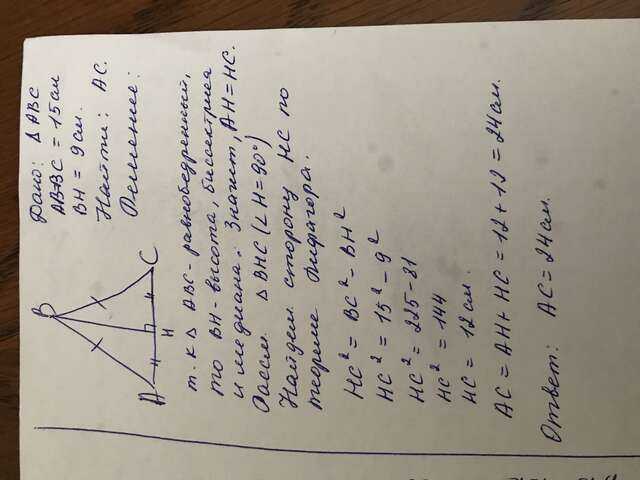 Дано: Δ ABC
AB=BC = 15 см
BH = 9 см.
Найти: AC.
Решение:
B
A
C
H
т. к Δ ABC - равнобедренный,
то BH - высота, биссектриса
и медиана. Значит, AH = HC.
Рассм. Δ BHC (∠H = 90°)
Найдем сторону HC по
теореме Пифагора.
HC² = BC² - BH²
HC² = 15² - 9²
HC² = 225 - 81
HC² = 144
HC = 12 см.
AC = AH + HC = 12 + 12 = 24 см.
Ответ: AC = 24 см.